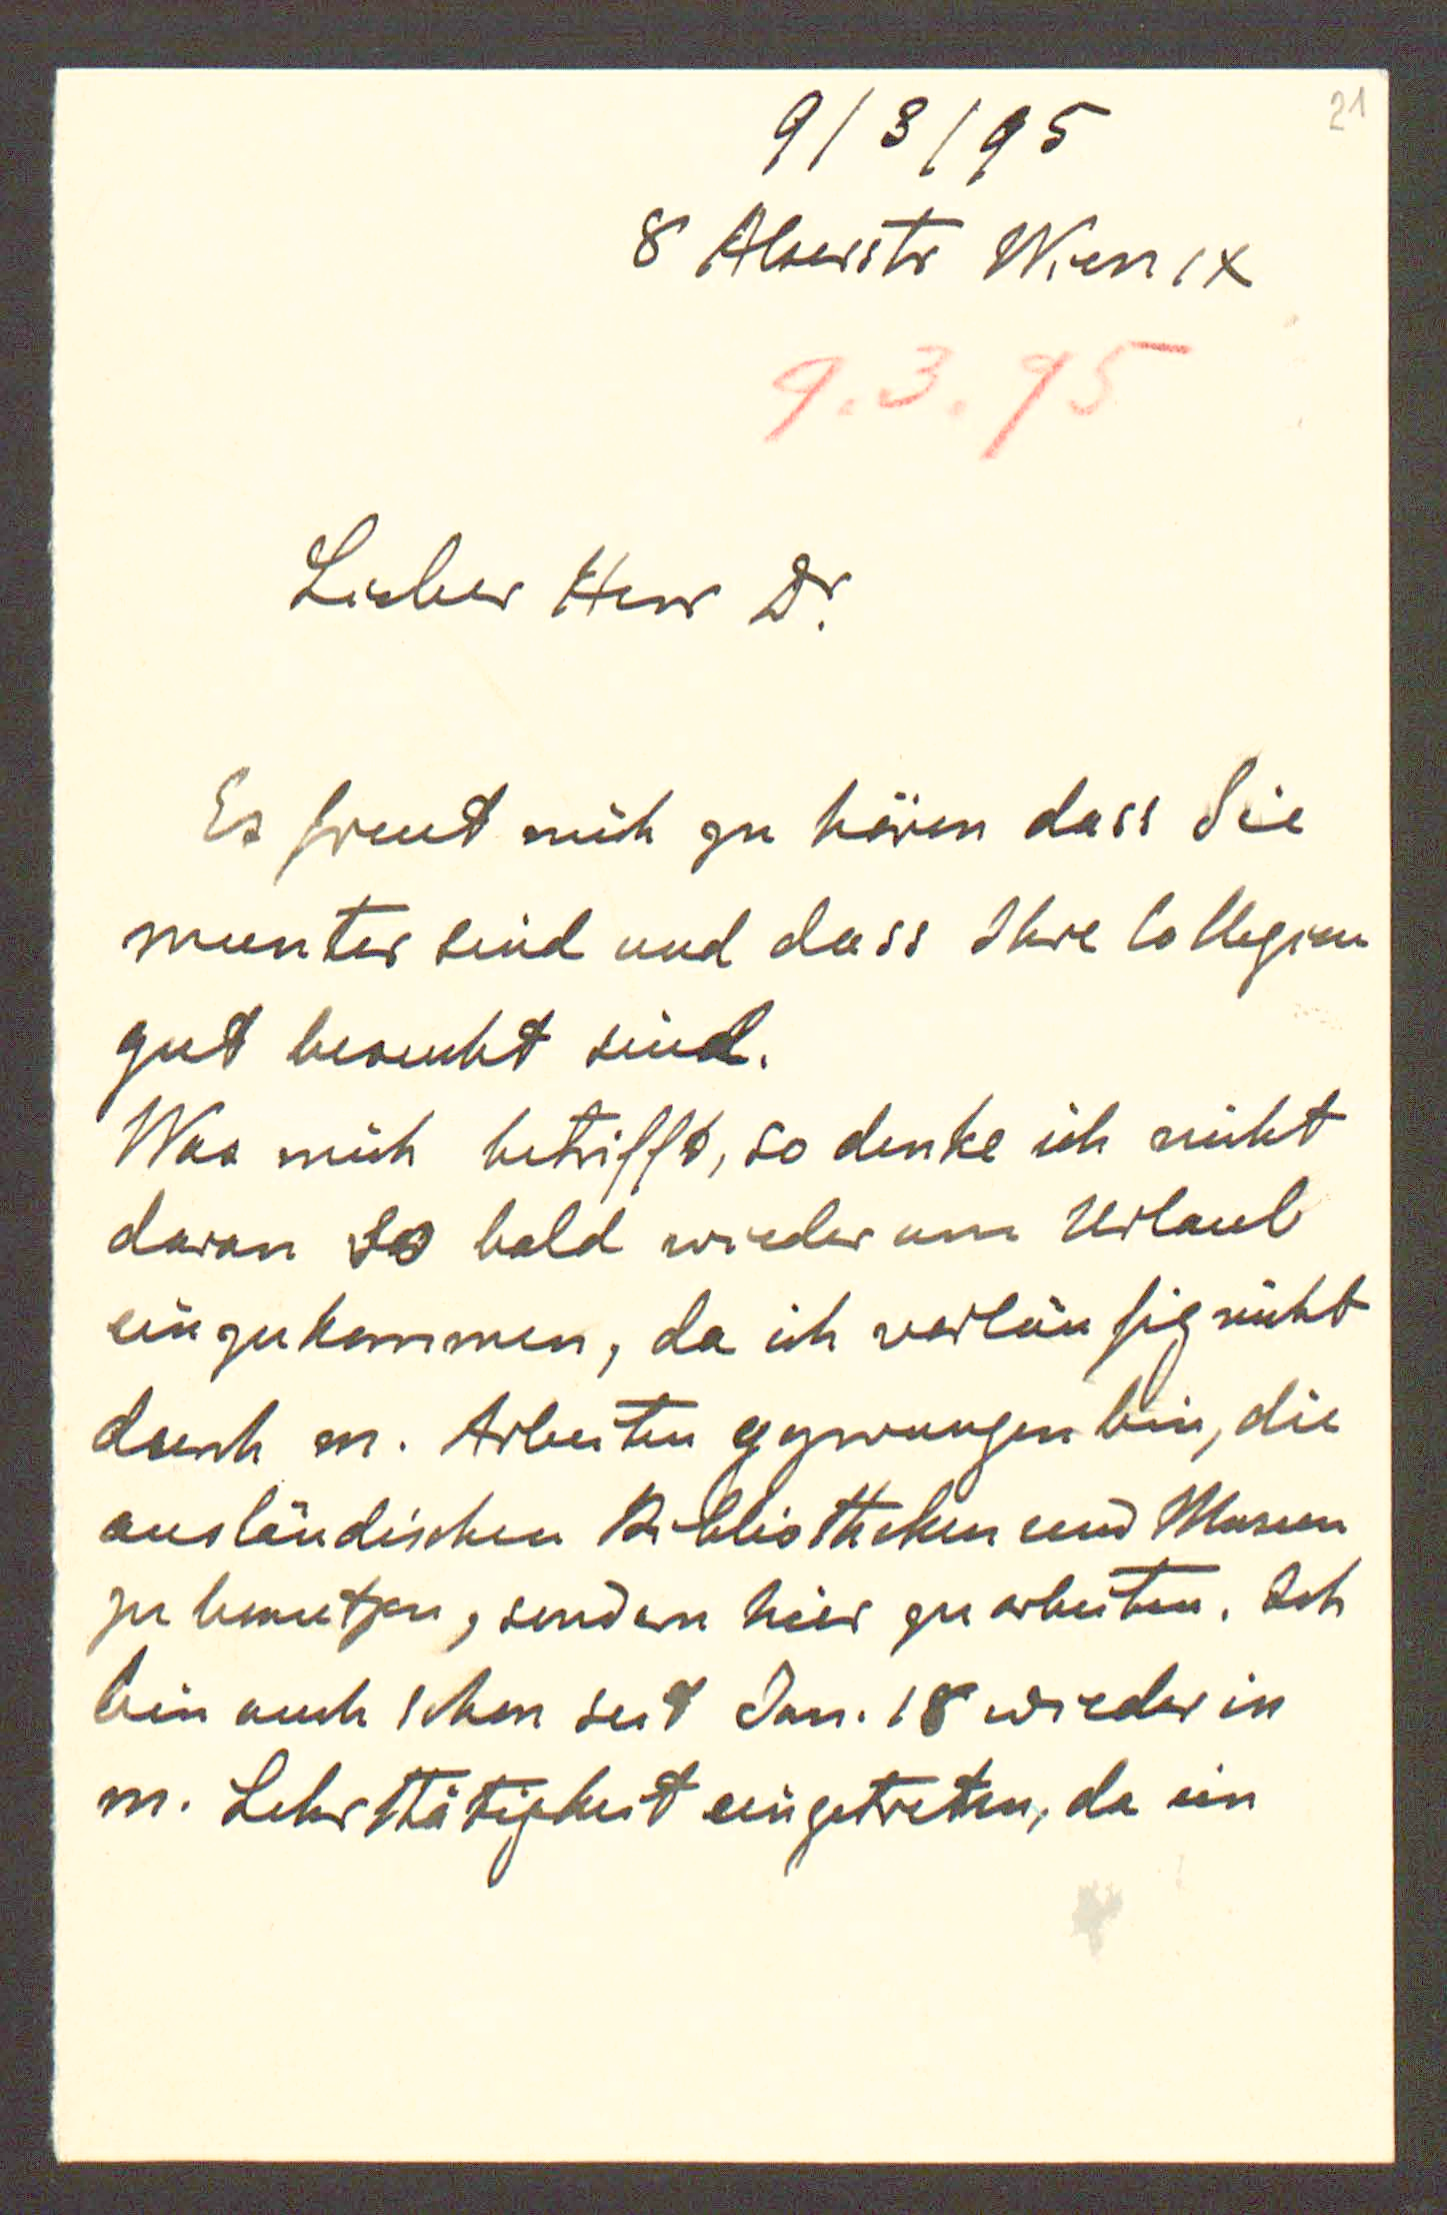 21
9/3/95
8 Alserstr Wien IX
9.3.95
Lieber Herr Dr.
Es freut mich zu hören dass Sie
munter sind und dass Ihre Collegien
gut besucht sind.
Was mich betrifft, so denke ich nicht
daran so bald wieder um Urlaub
einzukommen, da ich vorläufig nicht
durch m. Arbeiten gezwungen bin, die
ausländischen Bibliotheken und Museen
zu benutzen, sondern hier zu arbeiten. Ich
bin auch schon seit Jan. 18 wieder in
m. Lehrthätigkeit eingetreten, da ein